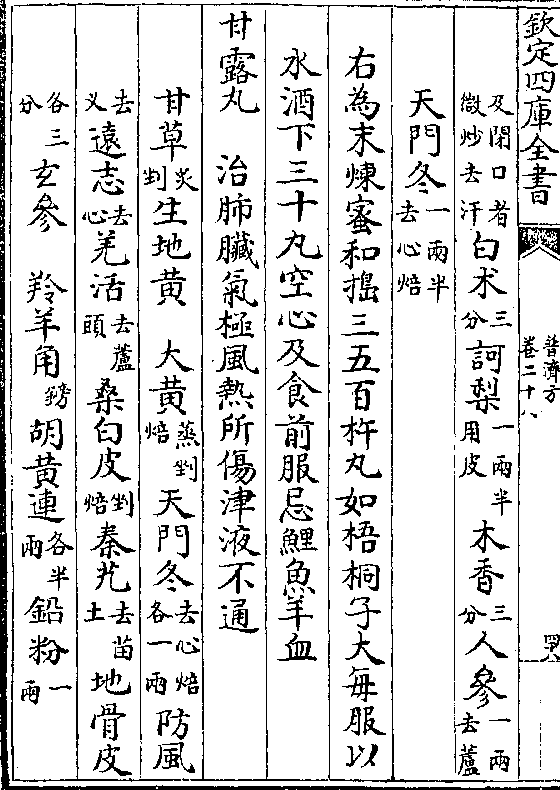 欽定四庫全書
普濟方
卷二十八
及閉口者微炒去汗白术三分訶梨一兩半用皮木香三分人參一兩去蘆
天門冬一兩半去心焙
右為末煉蜜和搗三五百杵丸如梧桐子大每服以
水酒下三十丸空心及食前服忌鯉魚羊血
甘露丸 治肺臟氣極風熱所傷津液不通
甘草炙剉生地黄 大黄蒸剉焙天門冬去心焙各一兩防風
去叉遠志去心羌活去蘆頭桑白皮剉焙秦艽去苗土地骨皮
各三分玄參 羚羊角鎊胡黄連各半兩鉛粉一兩